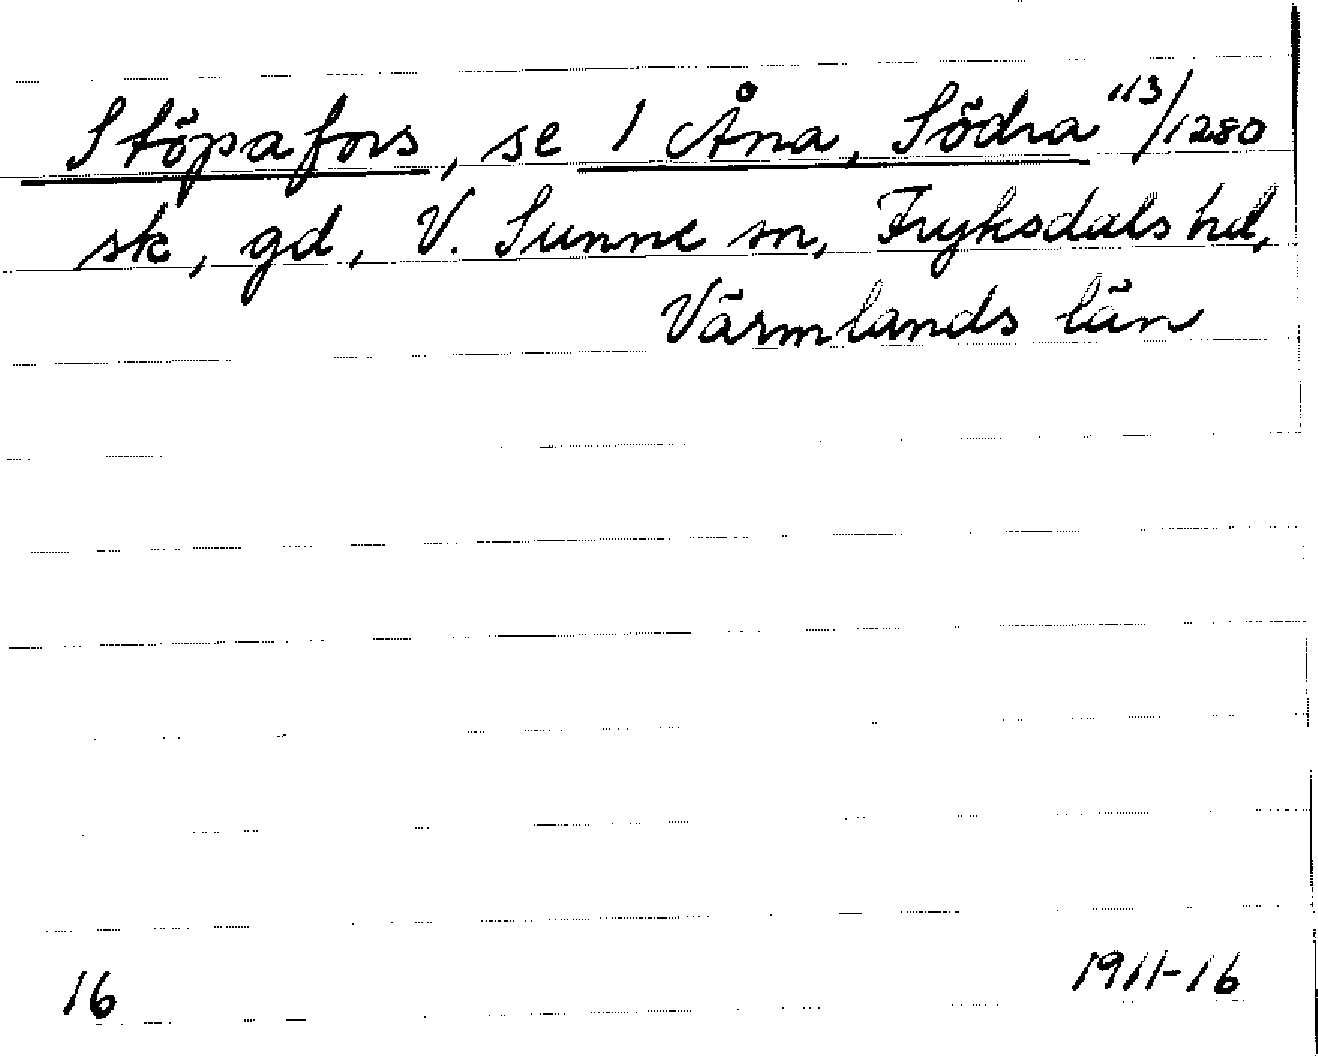 Stöpafors, se 1 Åna, Södra 113/1280
sk, gd, V. Sunne sn, Fryksdals hd,
Värmlands län
16
1911-16